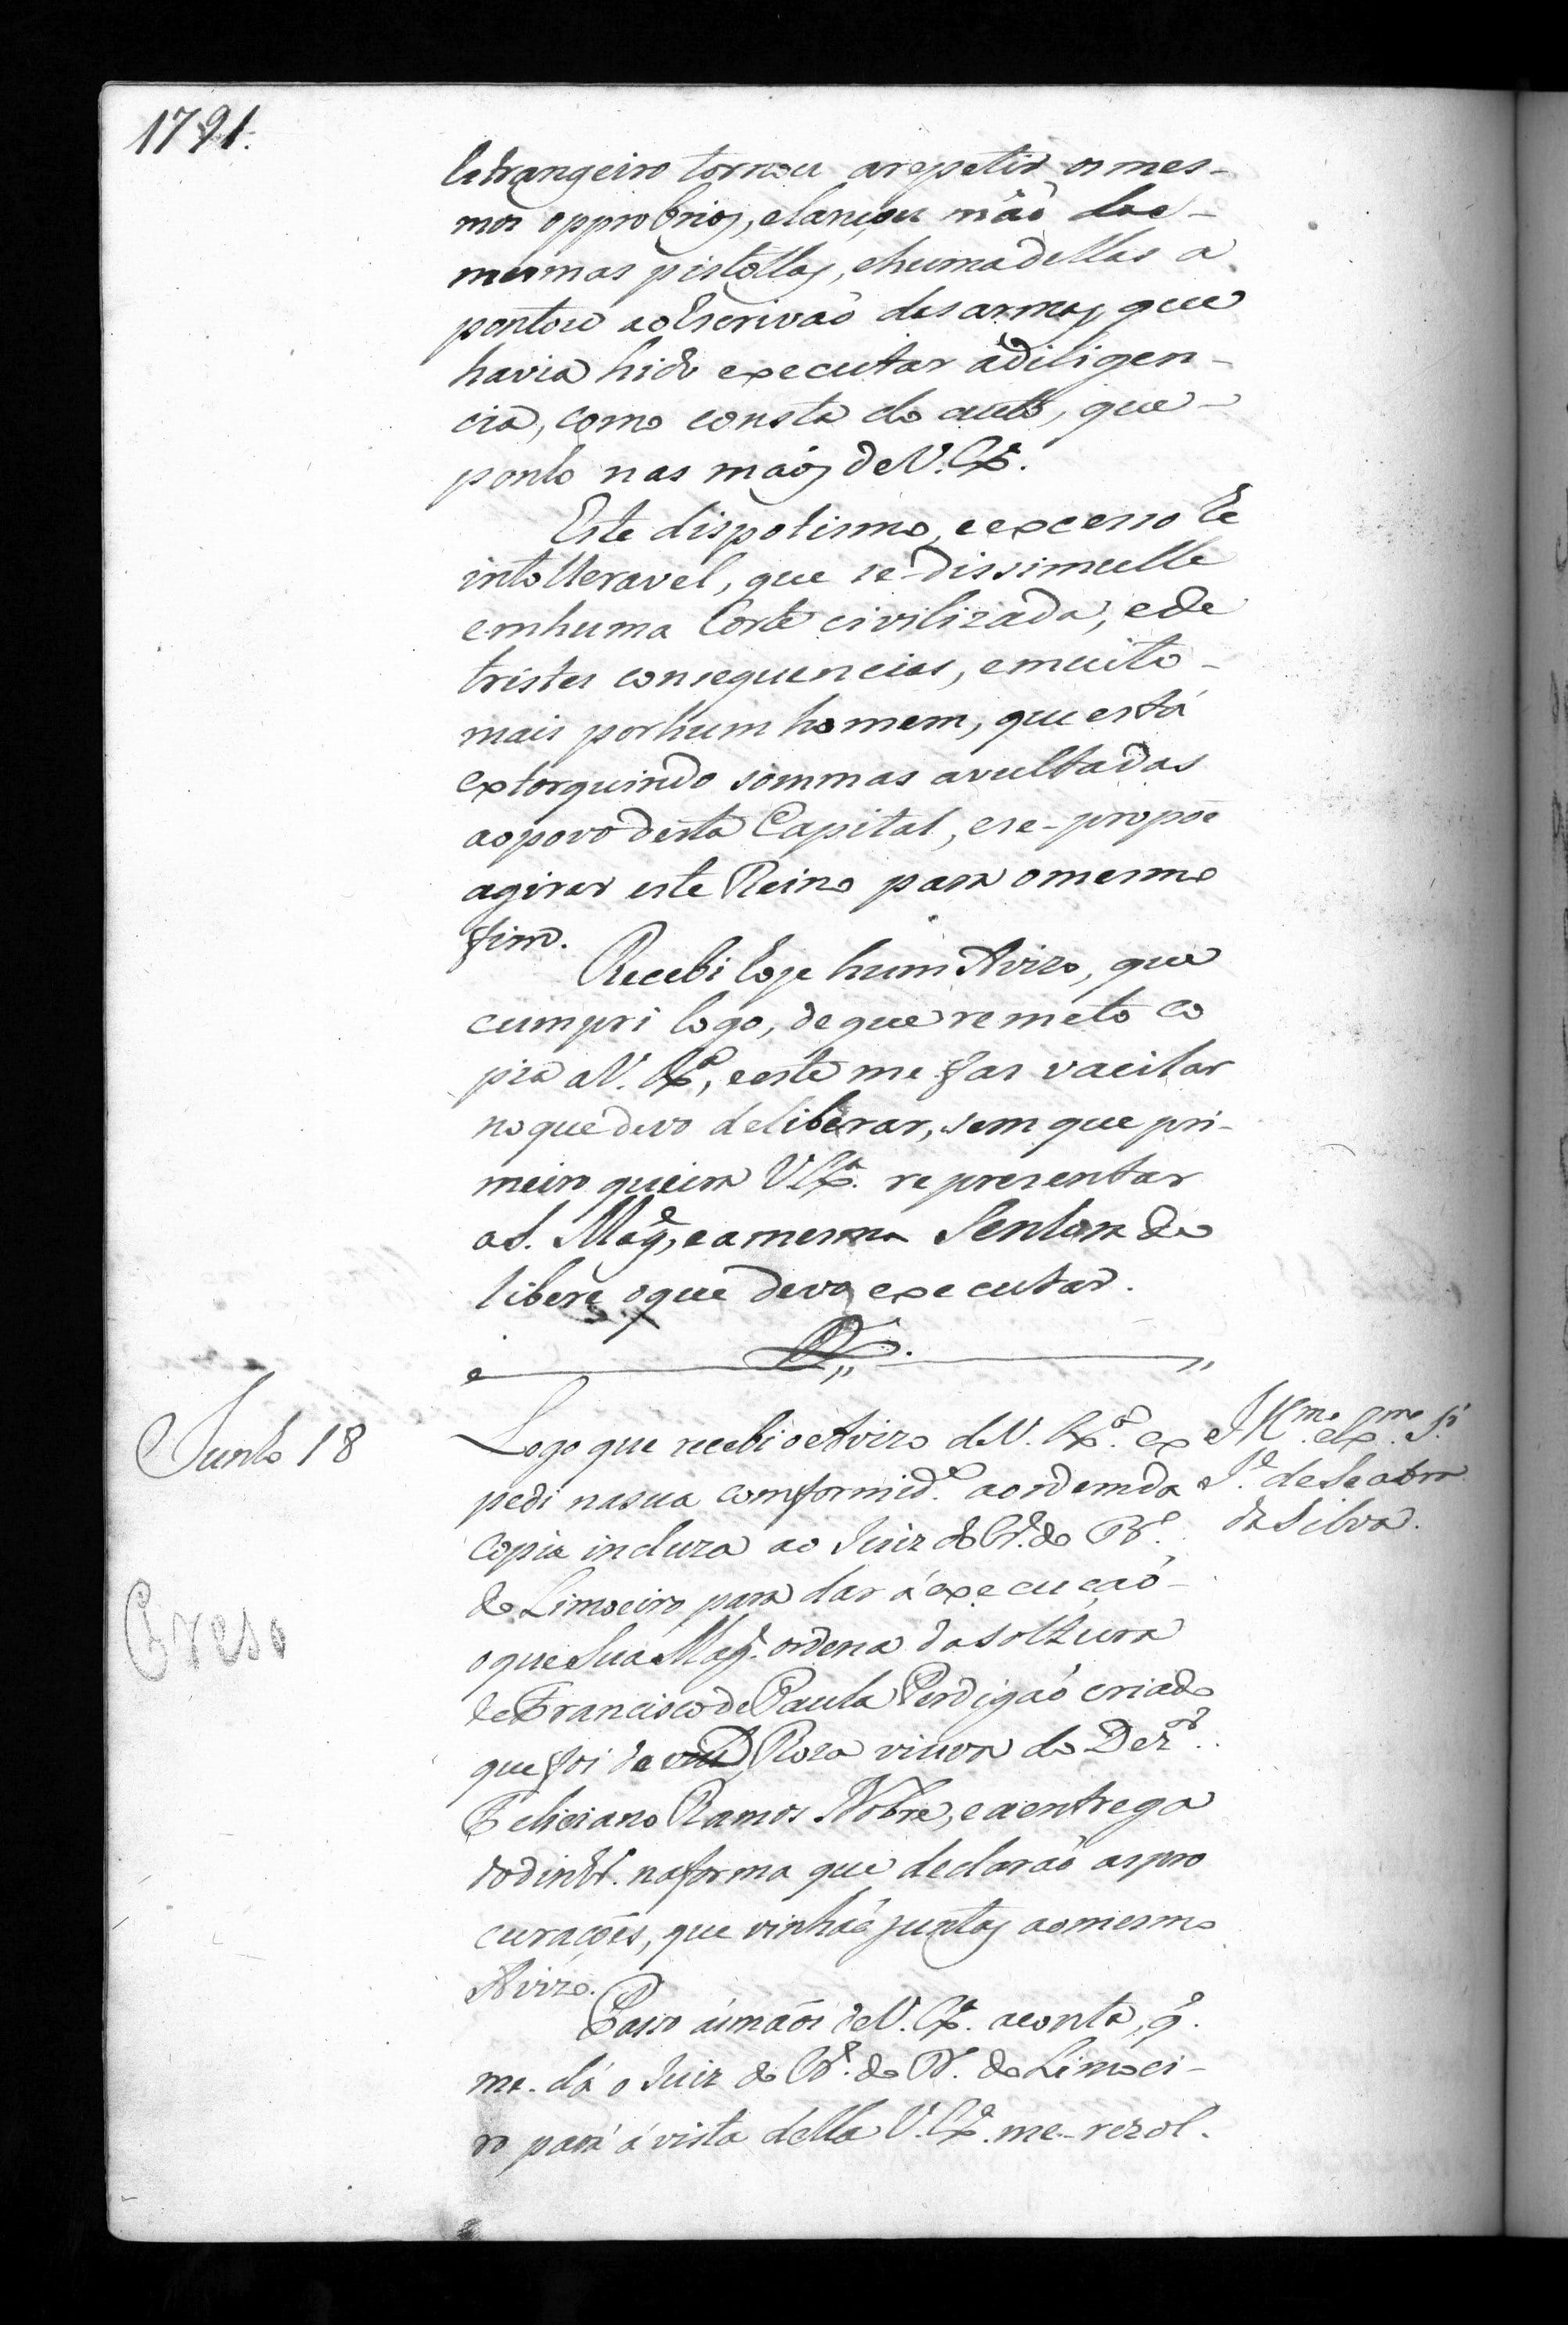 1791.
Estrangeiro tornou arepetir os mes-
mos opprobrios, elançou mão das
mesmas pistollas, ehuma dellas a
pontou aoEscrivaõ das armas, que
havia hido executar adiligen-
cia, como consta do auto, que-
ponho nas maõs deV. Exª.
Este dispotismo, eexcesso he
intolleravel, que se-dissimulle
emhuma Corte civilizada, ede
tristes consequencias, emuito-
mais porhum homem, que está
extorquindo sommas avultadas
aopovo desta Capital, ese-propoe
agirar este Reino para omesmo
fim.
Recebi hoje hum Avizo, que
cumpri logo, deque remeto co
pia aV. Exª, eeste me-fas vacilar
noquedevo deliberar, sem que pri-
meiro queira V.Exª. reprezentar
aS. Magᵉ, eamesma Senhora de
libere oque devo executar.
Junho 18
Logo que recebi oAvizo deV. Exª. ex
pedi nasua comformidᵉ. aordemda
copia incluza ao Juiz do Cr. do Bº.
do Limoeiro para dar áexecuçaõ-
oque Sua Magᵉ. ordena da soltura
de Francisco de Paula Perdigaõ criado
que foi de Roza viuva do Dezºʳ.
Feliciano Ramos Nobre, eaentrega
dodinhrº. naforma que declaraõ aspro
curaçoẽs, que vinhaõ juntas aomesmo
Avizo.
Illᵐᵒ. eExᵐᵒ. Sʳ.
Jᵉ. deSeabra
da Silva.
Preso
Passo ásmaõs deV. Exª. aconta, q̃.
me-dá o Juiz do Crᵉ. do Bº. do Limoei-
ro para á vista della V. Exª. me-rezol-